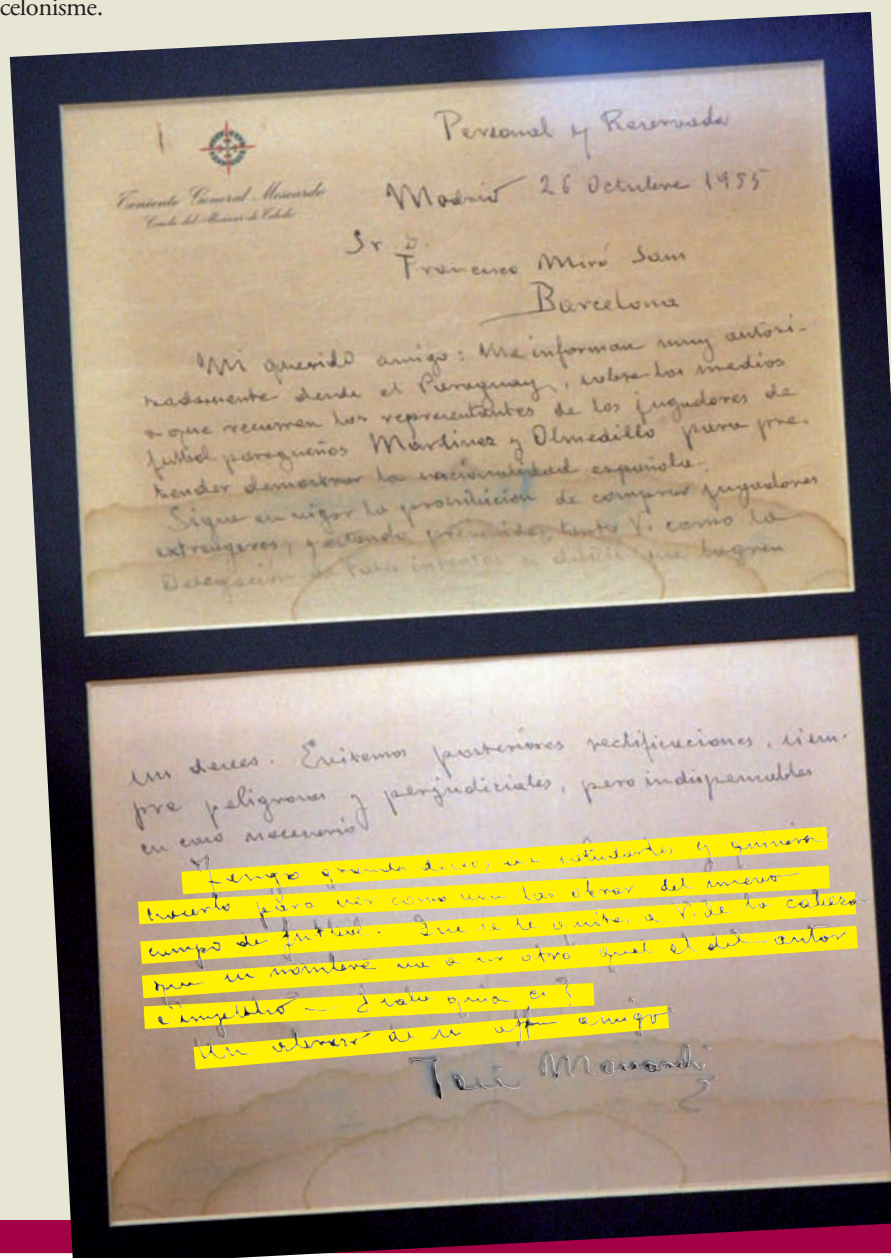 celonisme.
Personal y Reservada
Teniente General Moscardó
Conde del Alcázar de Toledo
Madrid 26 Octubre 1955
Sr D.
Francisco Miró Sans
Barcelona
Mi querido amigo: Me informan muy autori-
zadamente desde el Paraguay, sobre los medios
a que recurren los representantes de los jugadores de
futbol paragueños Martinez y Olmedillo para pre-
tender demostrar la nacionalidad española.
Sigue en vigor la prohibición de comprar jugadores
extrangeros, y estando prevenidos tanto V. como la
Delegación de tales intentos es dificil que logren
sus deseos. Evitemos posteriores rectificaciones, siem-
pre peligrosas y perjudiciales, pero indispensables
en caso necesario
Tengo grandes deseos en saludarles y quisiera
hacerlo para ver como van las obras del nuevo
campo de futbol. Que se le quite a V. de la cabeza
que su nombre sea otro que el del autor
e impulsor - ¿Sabe quien es?
Un abrazo de su affmo amigo
José Moscardó